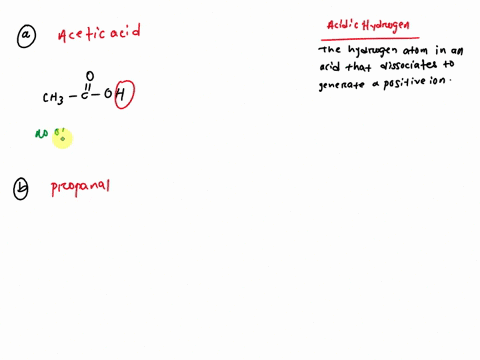 (a) Acetic acid
O
||
CH3 - C - OH
no o
(b) propanal
Acidic Hydrogen
The hydrogen atom in an
acid that dissociates to
generate a positive ion.